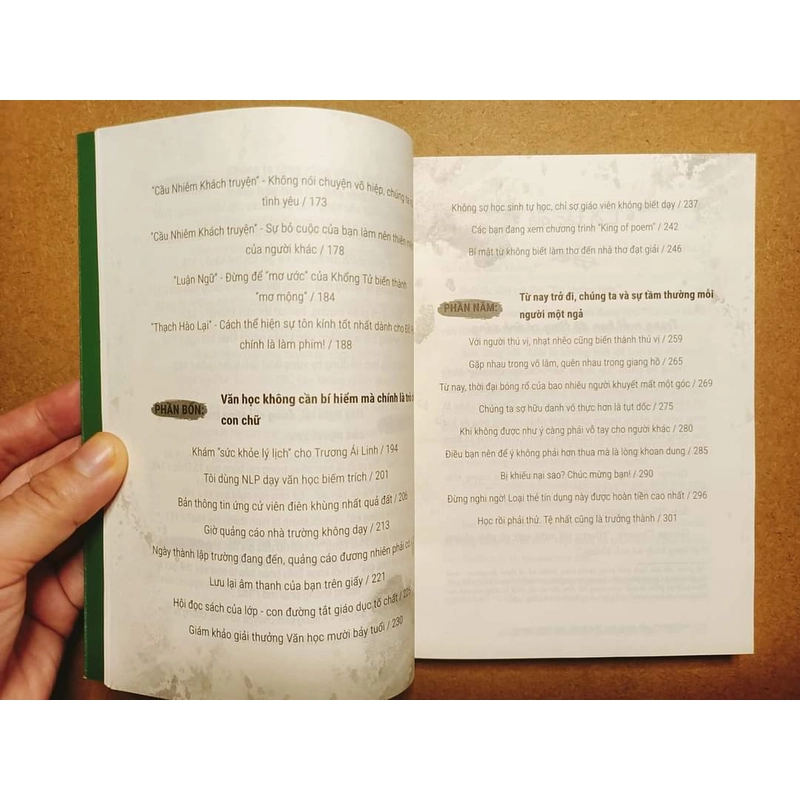 "Cầu Nhiêm Khách truyện" - Không nói chuyện võ hiệp, chúng ta
tình yêu / 173
"Cầu Nhiêm Khách truyện" - Sự bỏ cuộc của bạn làm nên thiên
của người khác / 178
"Luận Ngữ" - Đừng để "mơ ước" của Khổng Tử biến thành
"mơ mộng" / 184
"Thạch Hào Lại" - Cách thể hiện sự tôn kính tốt nhất dành cho
chính là làm phim! / 188
PHẦN BỐN:
Văn học không cần bí hiểm mà chính là trò
con chữ
Khám "sức khỏe lý lịch" cho Trương Ái Linh / 194
Tôi dùng NLP dạy văn học biếm trích / 201
Bản thông tin ứng cử viên điên khùng nhất quả đất / 206
Giờ quảng cáo nhà trường không dạy / 213
Ngày thành lập trường đang đến, quảng cáo đương nhiên phải có
Lưu lại âm thanh của bạn trên giấy / 221
Hội đọc sách của lớp - con đường tắt giáo dục tố chất /
Giám khảo giải thưởng Văn học mười bảy tuổi / 230
Không sợ học sinh tự học, chỉ sợ giáo viên không biết dạy / 237
Các bạn đang xem chương trình "King of poem" / 242
Bí mật từ không biết làm thơ đến nhà thơ đạt giải / 246
PHẦN NĂM:
Từ nay trở đi, chúng ta và sự tầm thường mỗi
người một ngả
Với người thú vị, nhạt nhẽo cũng biến thành thú vị / 259
Gặp nhau trong võ lâm, quên nhau trong giang hồ / 265
Từ nay, thời đại bóng rổ của bao nhiêu người khuyết mất một góc / 269
Chúng ta sợ hữu danh vô thực hơn là tụt dốc / 275
Khi không được như ý càng phải vỗ tay cho người khác / 280
Điều bạn nên để ý không phải hơn thua mà là lòng khoan dung / 285
Bị khiếu nại sao? Chúc mừng bạn! / 290
Đừng nghi ngờ! Loại thẻ tín dụng này được hoàn tiền cao nhất / 296
Học rồi phải thử. Tệ nhất cũng là trưởng thành / 301